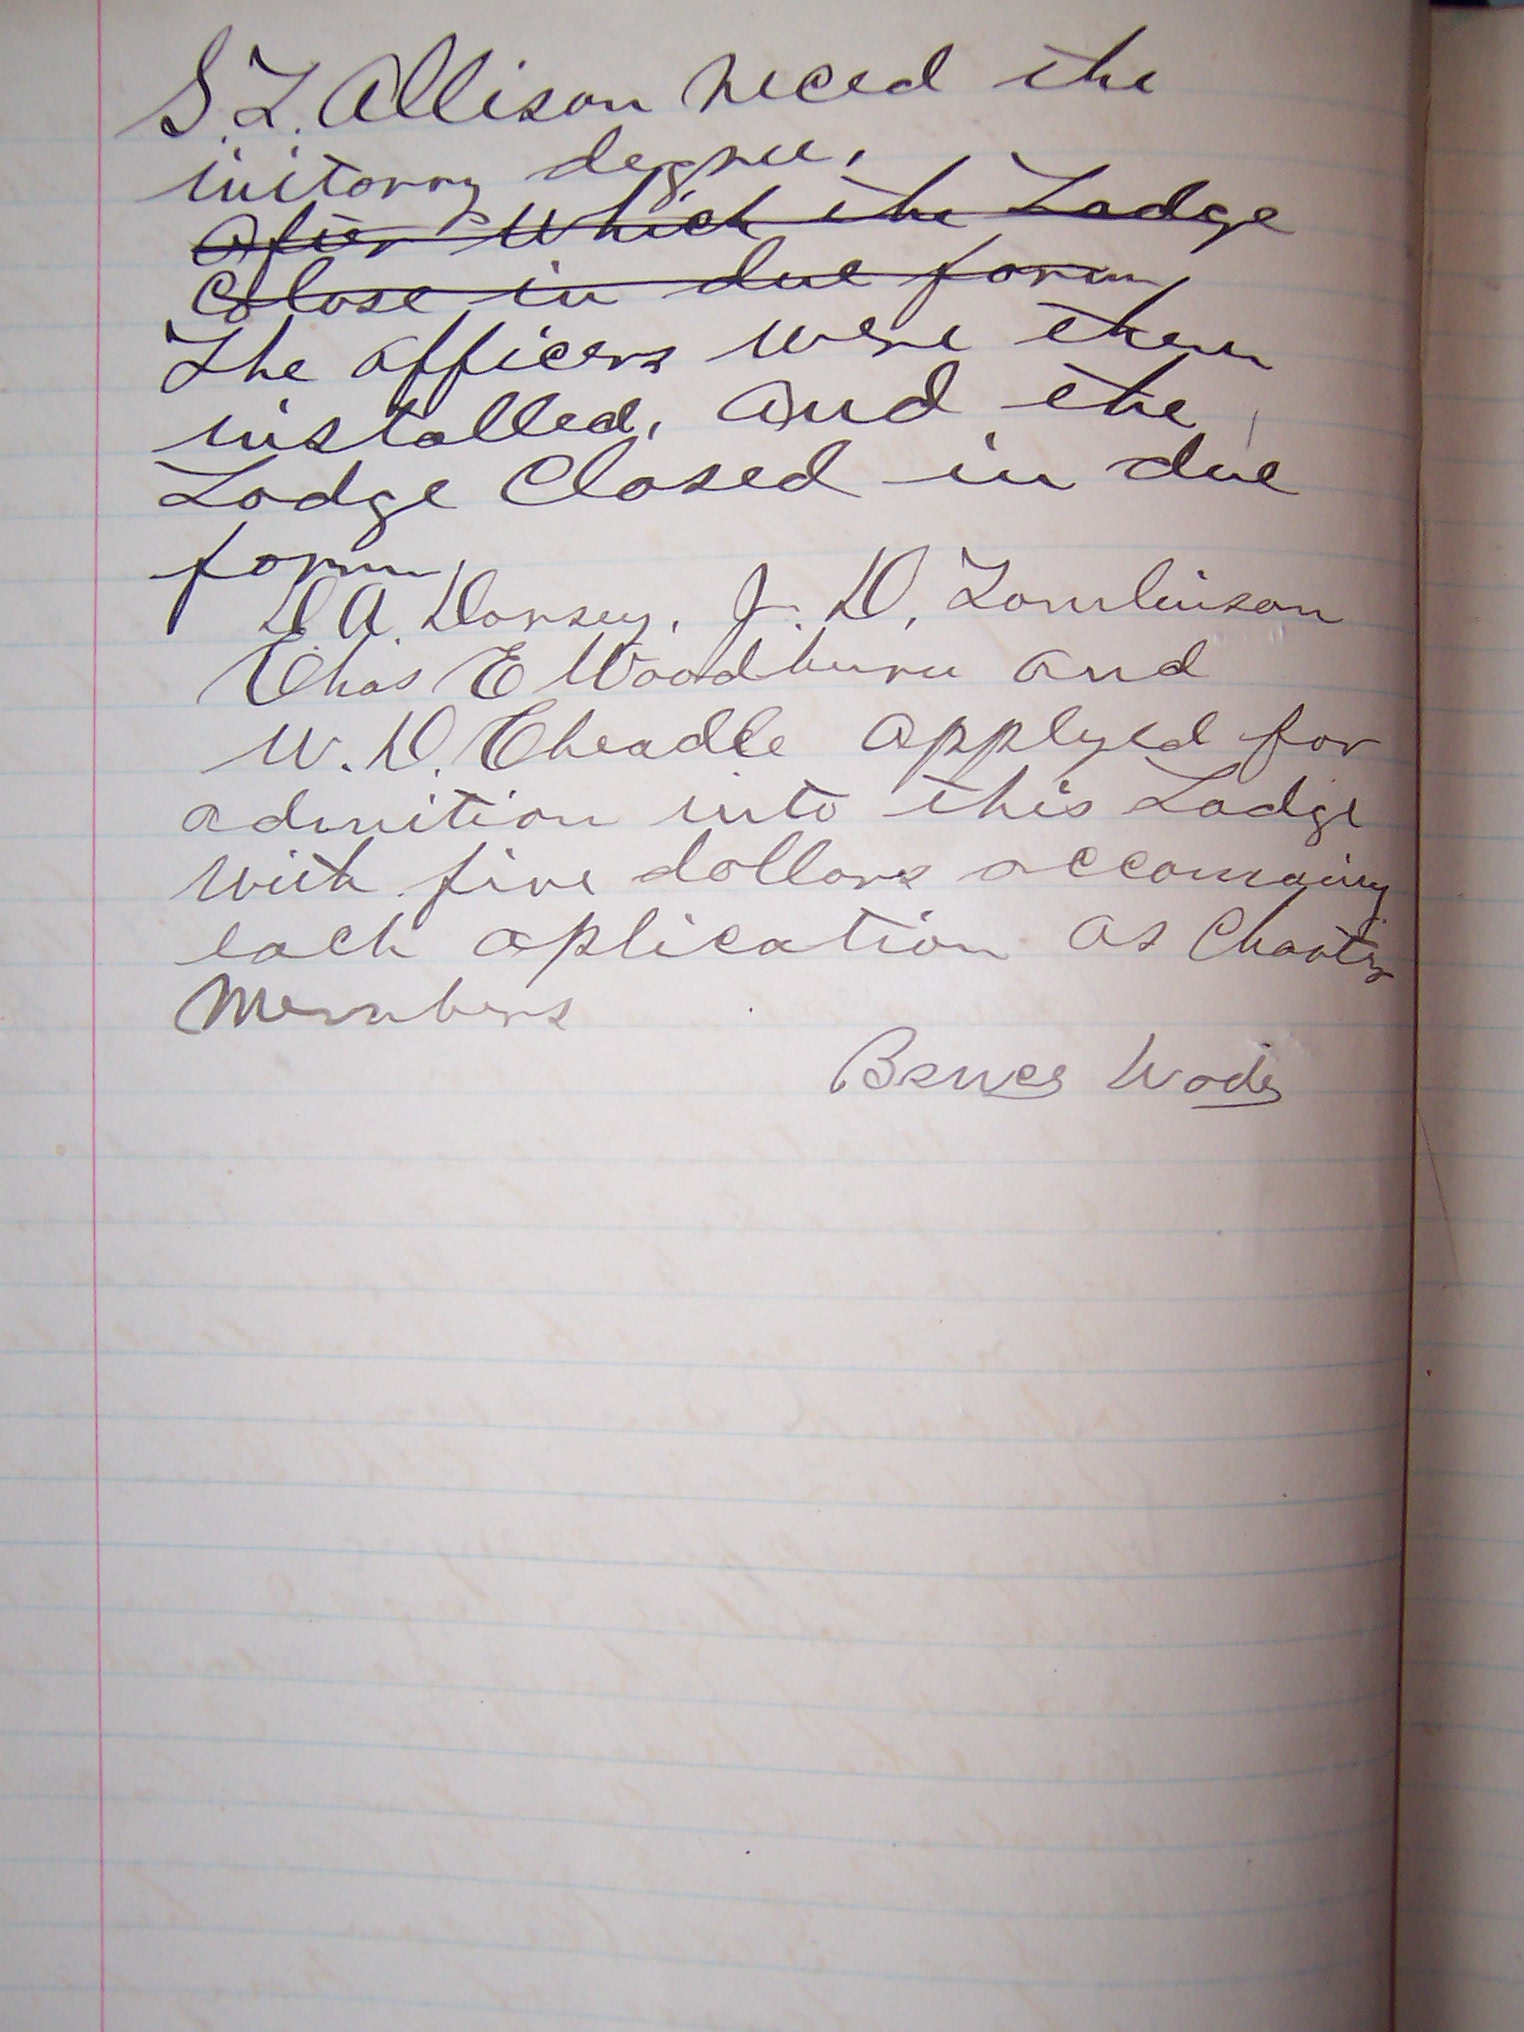 S. L. Allison reced the
initorry degree,
After which the Lodge
Colose in due form
The officers were then
installed, and the
Lodge Closed in due
form,
D A. Dorsey, J. D, Tomlinson
Chas E Woodburn and
W. D. Cheadle applyed for
admition into this Lodge
with five dollars accomainy
each aplication as Charter
Members